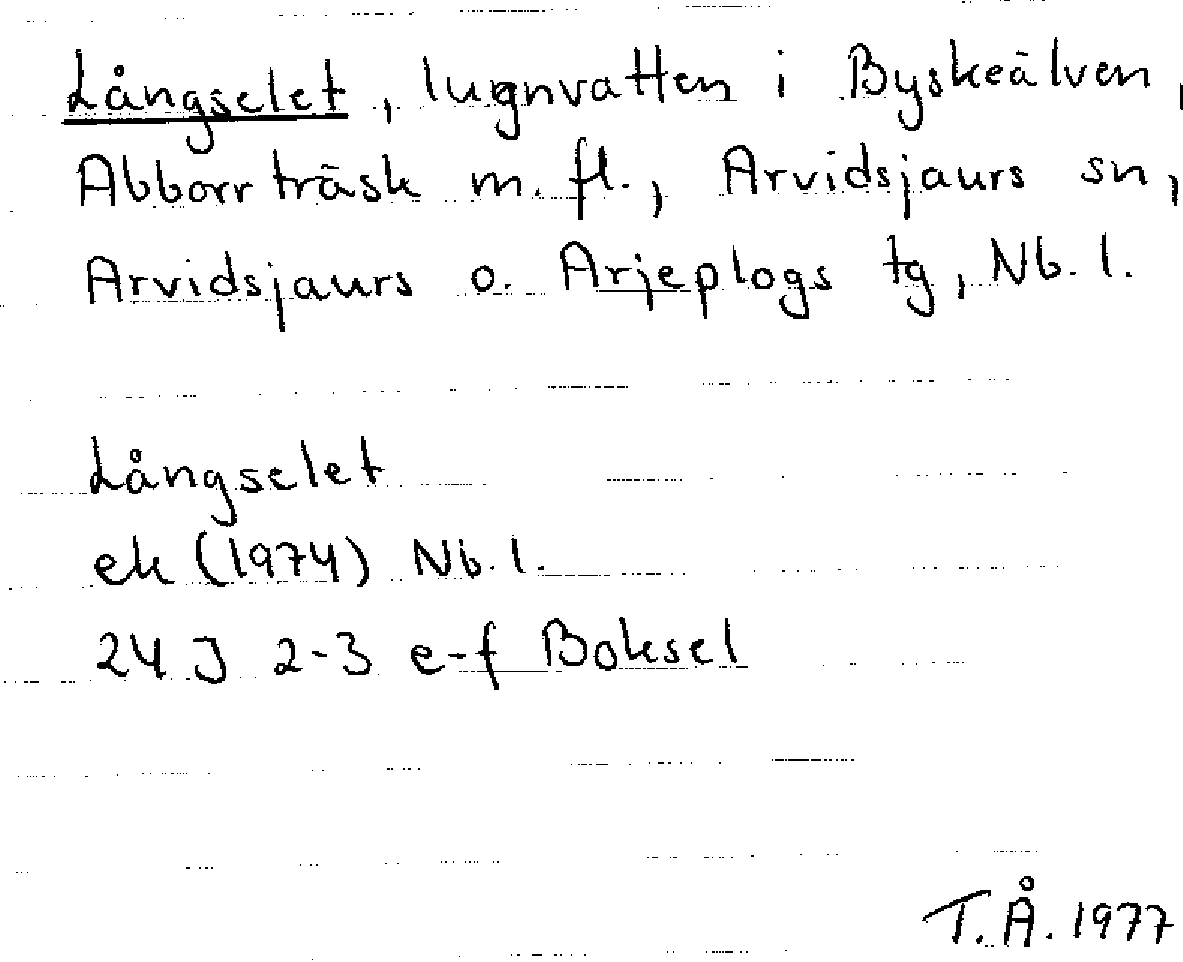 Långselet, lugnvatten i Byskeälven,
Abborrträsk m. fl., Arvidsjaurs sn,
Arvidsjaurs o. Arjeplogs tg, Nb. l.
Långselet
ek (1974) Nb. l.
24 J 2-3 e-f Boksel
T. Å. 1977